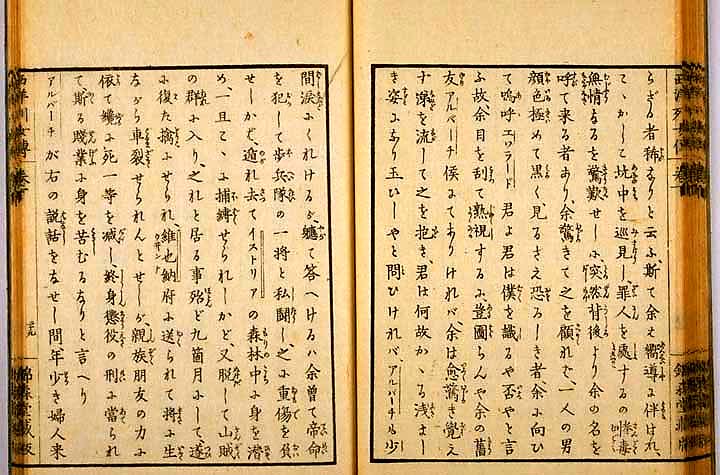 らざる者稀なりと云ふ、斯て余ハ嚮導に伴はれ、
坑中を巡見し、罪人を處するの惨毒
無情なるを驚歎せしに、突然背後より余の名を
呼て来る者あり、余驚きて之を顧れバ、一人の男
顔色極めて黒く、見るさえ恐ろしき者余に向ひ
て嗚呼エロラード君よ君は僕を識るや否やと言
ふ故余目を刮て熟視するに、豈圖らんや余の舊
友アルバーチ侯にてありけれバ余は愈驚き覚え
ず涙を流して之を抱き、君は何故かゝる浅まし
き姿になり玉ひしやと問ひけれバ、アルバーチも少
間涙にくれけるが、纔て答へけるハ余曽て帝命
を犯して歩兵隊の一将と私闘し、之に重傷を負
せしかど、遁れ去てイストリアの森林中に身を潜
め、一旦ハ捕縛せられしかど、又脱して山賊
の群に入り、之れと居る事殆ど九箇月にして遂
に復た擒にせられ維也納府に送られて将に生
ながら車裂せられんとせしが、親族朋友の力に
依て纔に死一等を減し、終身懲役の刑に當られ
て斯る賤業に身を苦むるなりと言へり
アルバーチが右の説話をなせし間年少き婦人来